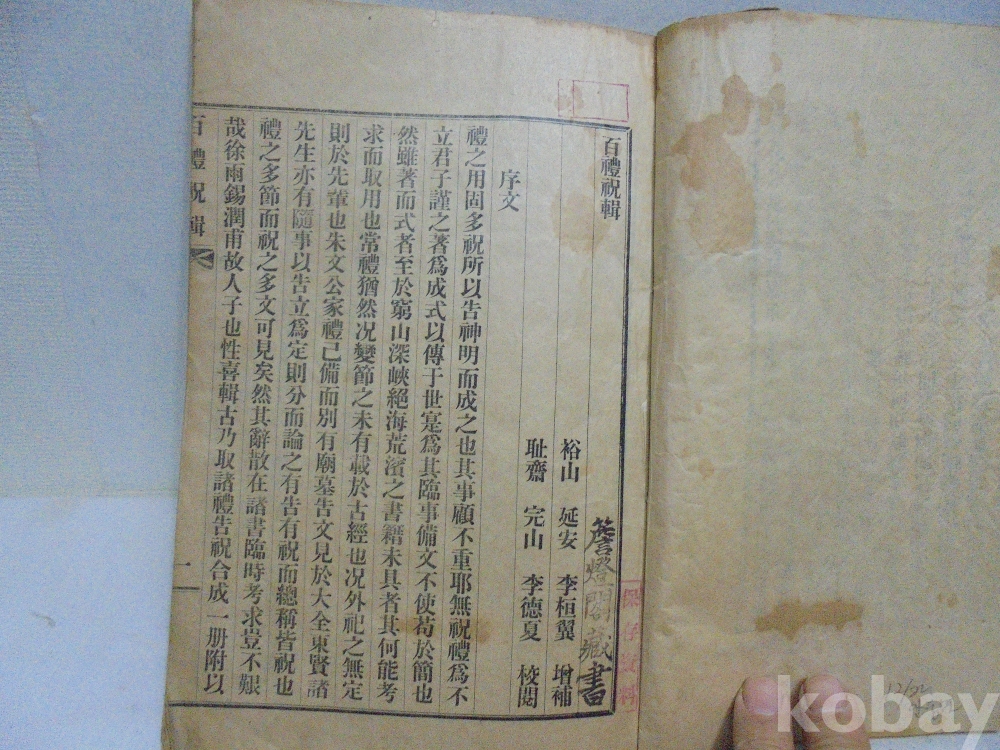 百禮祝輯
簷燈閣藏書
裕山 延安 李桓翼 增補
耻齋 完山 李德夏 校閱
序文
禮之用固多祝所以告神明而成之也其事顧不重耶無祝禮爲不
立君子謹之著爲成式以傳于世寔爲其臨事備文不使苟於簡也
然雖著而式者至於窮山深峽絕海荒濱之書籍未具者其何能考
求而取用也常禮猶然况變節之未有載於古經也况外祀之無定
則於先輩也朱文公家禮已備而別有廟墓告文見於大全東賢諸
先生亦有隨事以告立爲定則分而論之有告有祝而總稱皆祝也
禮之多節而祝之多文可見矣然其辭散在諸書臨時考求豈不艱
哉徐雨錫潤甫故人子也性喜輯古乃取諸禮告祝合成一册附以
百禮祝輯 一
保存資料
kobay